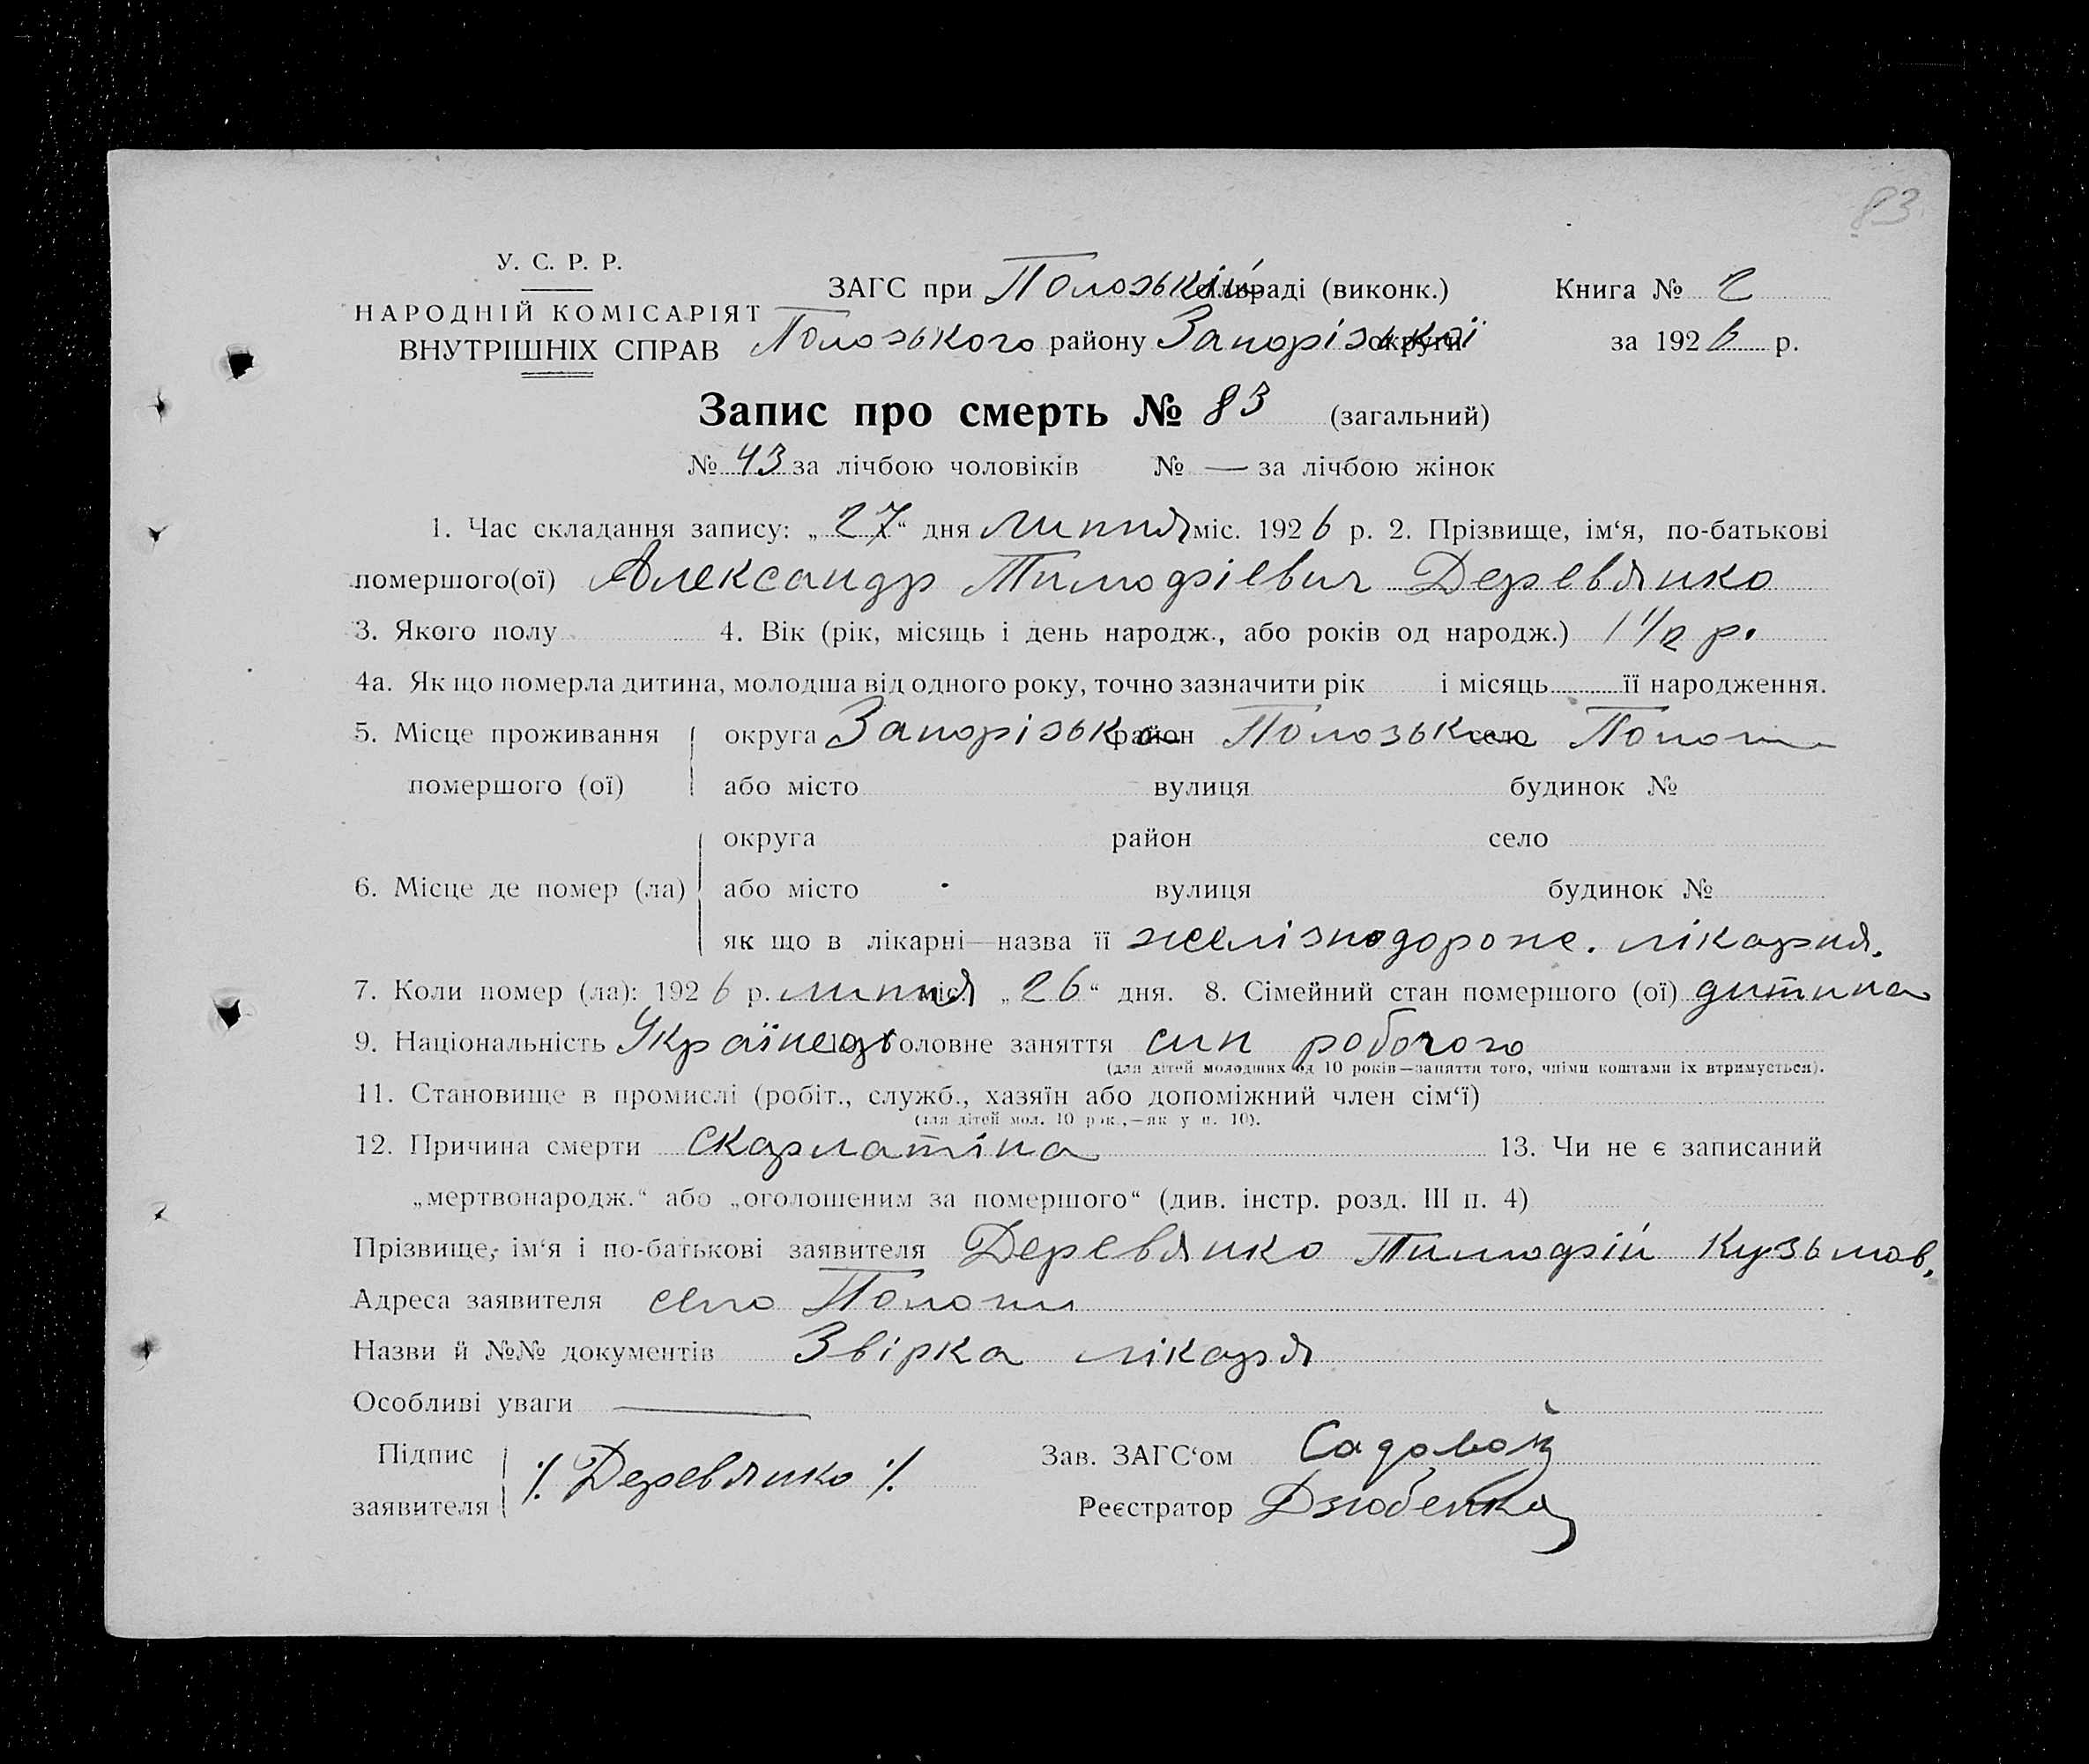 83
У. С. Р. Р.
НАРОДНІЙ КОМІСАРІЯТ
ВНУТРІШНІХ СПРАВ
ЗАГС при Полозькій сільраді (виконк.)
Полозького району Запорізької округи
Книга № 2
за 1926 р.
Запис про смерть № 83 (загальний)
№ 43 за лічбою чоловіків № — за лічбою жінок
1. Час складання запису: „27“ дня липня міс. 1926 р. 2. Прізвище, ім‘я, по-батькові
помершого(ої) Александр Тимофіевич Деревянко
3. Якого полу 4. Вік (рік, місяць і день народж., або років од народж.) 1 1/2 р.
4а. Як що померла дитина, молодша від одного року, точно зазначити рік і місяць її народження.
5. Місце проживання округа Запорізька район Полозький село Пологи
помершого (ої) або місто вулиця будинок №
округа район село
6. Місце де помер (ла) або місто вулиця будинок №
як що в лікарні—назва її желізнодорож. лікарня.
7. Коли помер (ла): 1926 р. липня міс. „26“ дня. 8. Сімейний стан помершого (ої) дитина
9. Національність Українець 10. Головне заняття син робочого
(для дітей молодших од 10 років—заняття того, чиїми коштами їх втримується).
11. Становище в промислі (робіт., служб., хазяїн або допоміжний член сім‘ї)
(для дітей мол. 10 рок.,—як у п. 10).
12. Причина смерти скарлатіна 13. Чи не є записаний
„мертвонародж.“ або „оголошеним за помершого“ (див. інстр. розд. III п. 4)
Прізвище, ім‘я і по-батькові заявителя Деревянко Тимофій Кузьмов.
Адреса заявителя село Пологи
Назви й №№ документів Звірка лікаря
Особливі уваги —
Підпис
заявителя ./. Деревянко ./.
Зав. ЗАГС‘ом Садовой
Реєстратор Дзюбенко